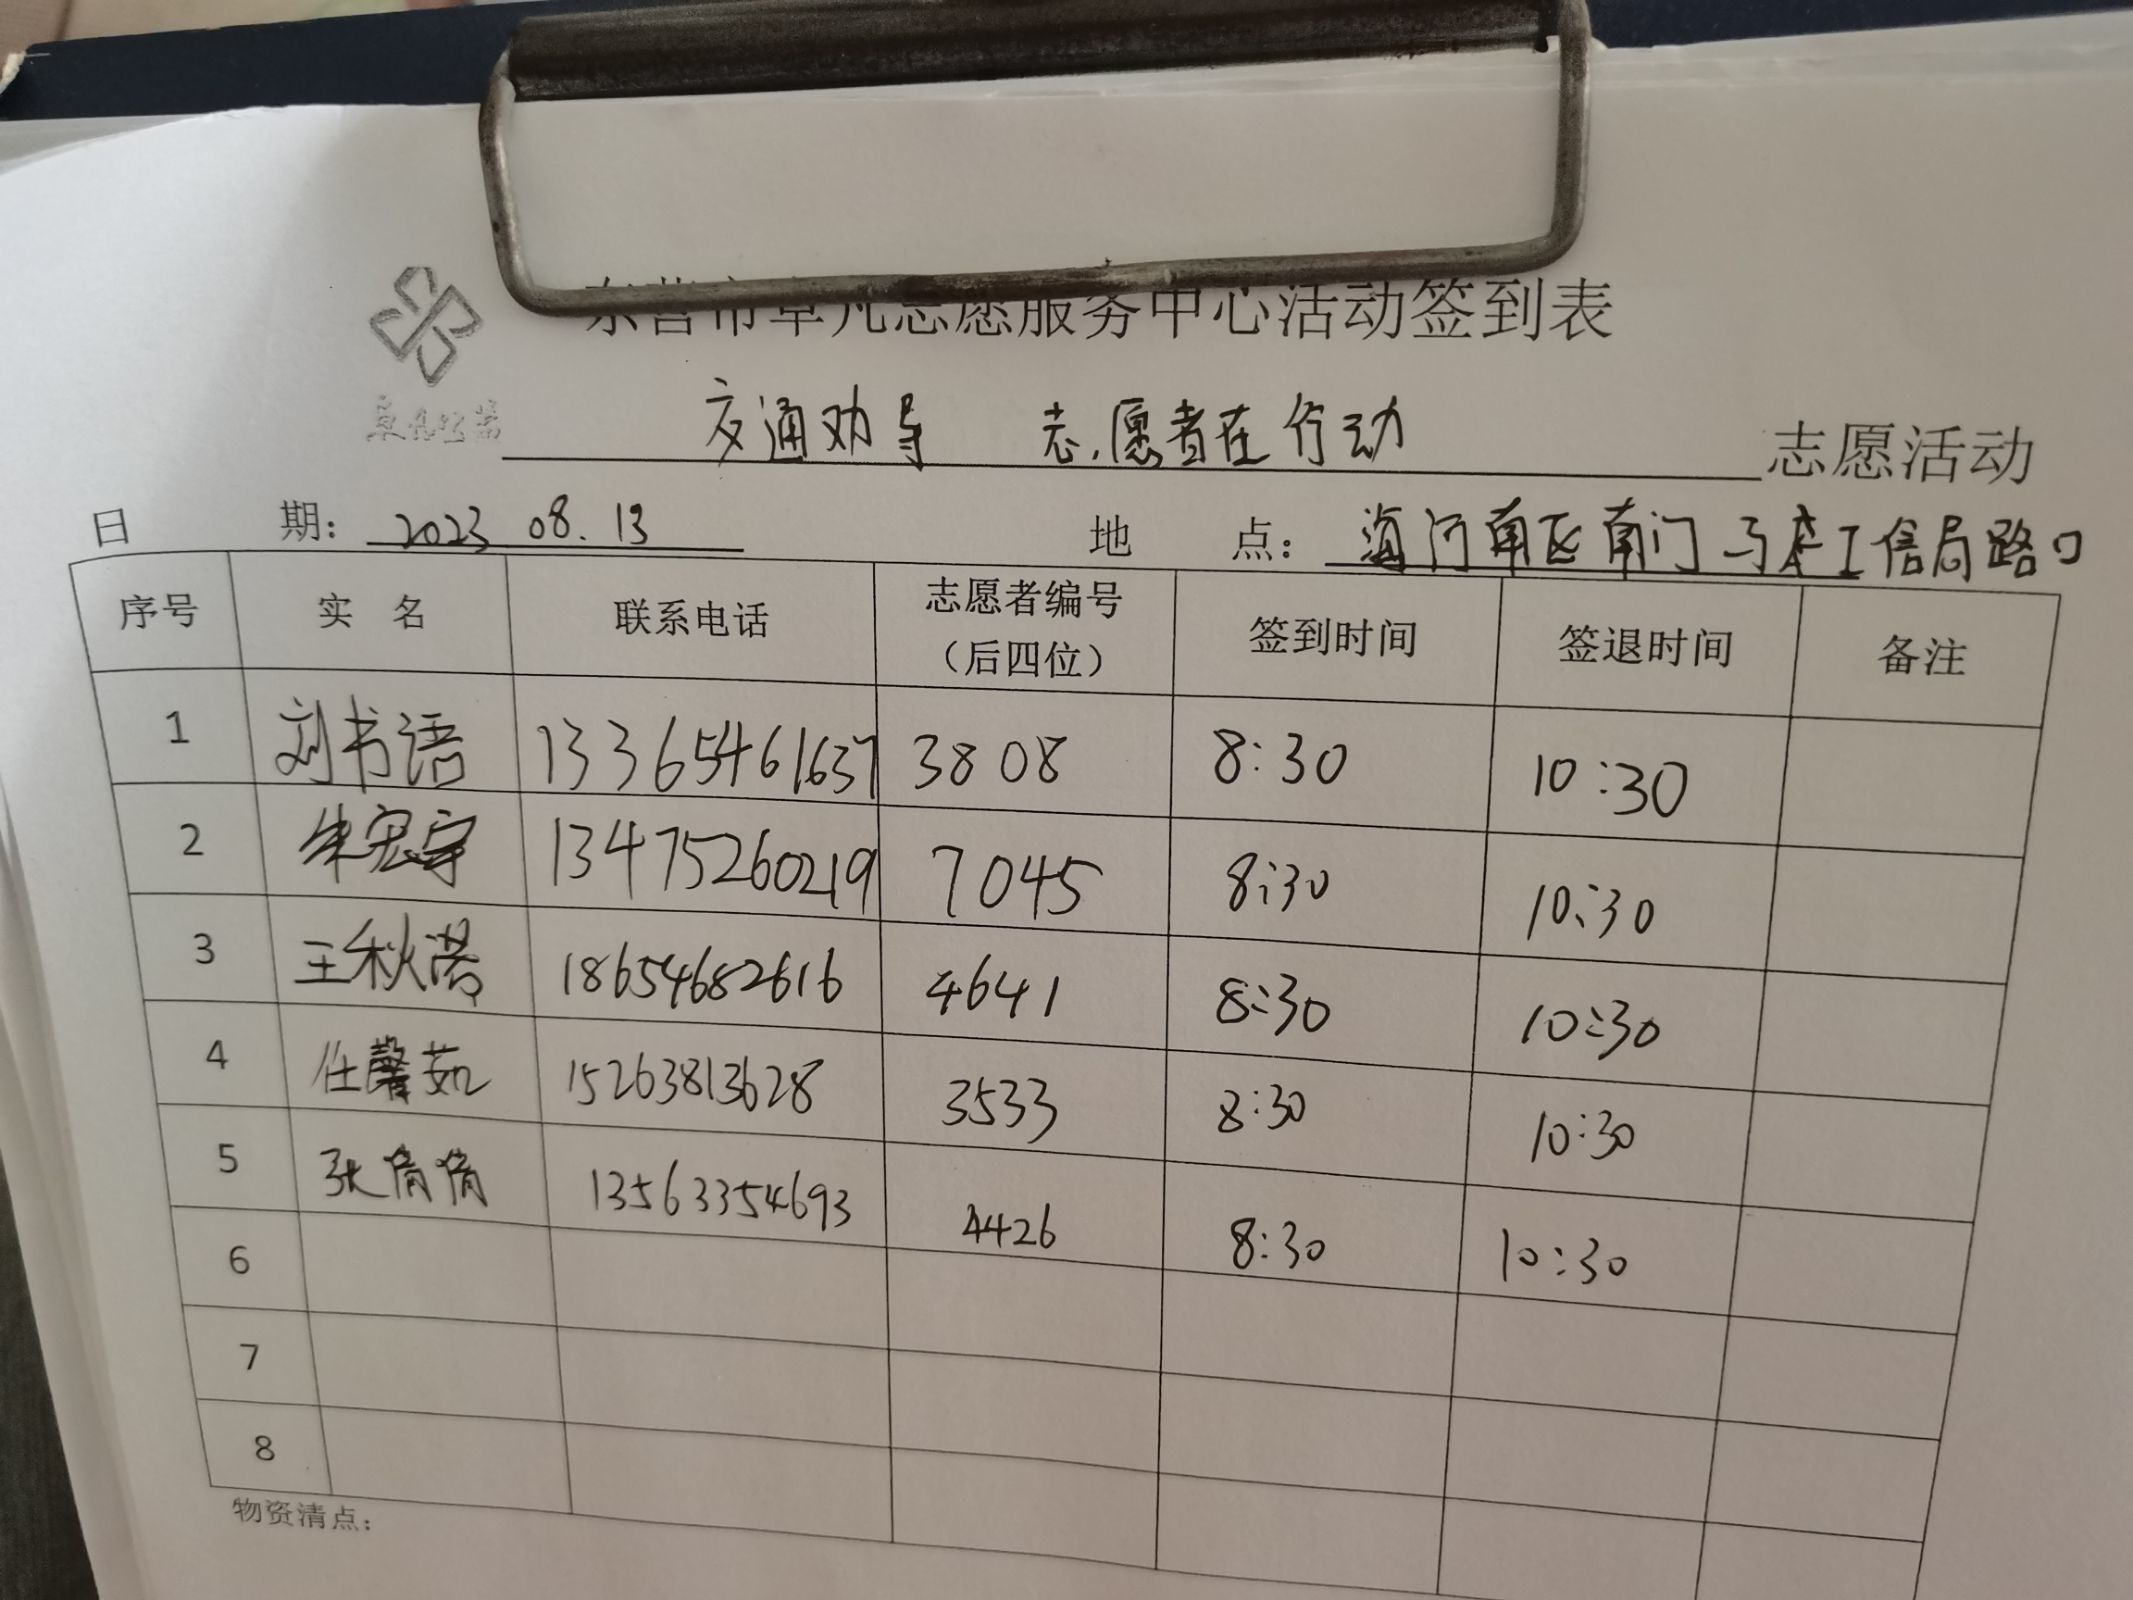 东营市卓凡志愿服务中心活动签到表
卓凡公益
交通劝导 志愿者在行动 志愿活动
日 期: 2023 08.13 地 点: 海河南区南门 工信局路口
序号 实 名 联系电话 志愿者编号(后四位) 签到时间 签退时间 备注
1 刘书语 13365461637 3808 8:30 10:30
2 朱宏宇 13475260219 7045 8:30 10:30
3 王秋 18654682616 4641 8:30 10:30
4 任馨茹 15263813628 3533 8:30 10:30
5 张倩倩 13563354693 4426 8:30 10:30
6
7
8
物资清点: